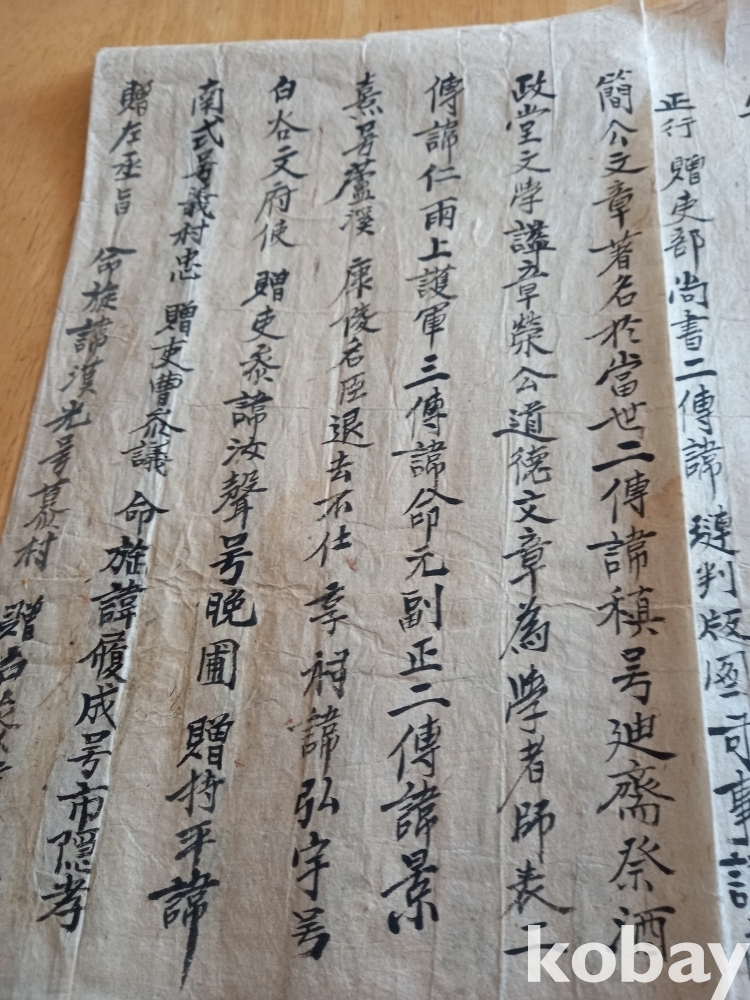 正行 贈吏部尚書二傳諱璉判版圖司事諡
簡公文章著名於當世二傳諱稹号迪齋祭酒
政堂文學諡章榮公道德文章為學者師表二
傳諱仁雨上護軍三傳諱命元副正二傳諱景
熹号蘆溪 康陵名臣退去不仕享祠諱弘宇号
白谷文府使 贈吏叅諱汝聲号晚圃 贈持平諱
南式号義村忠 贈吏曹叅議 命旋諱履成号市隱孝
贈左丞旨 命旋諱漢光号慕村 贈
kobay